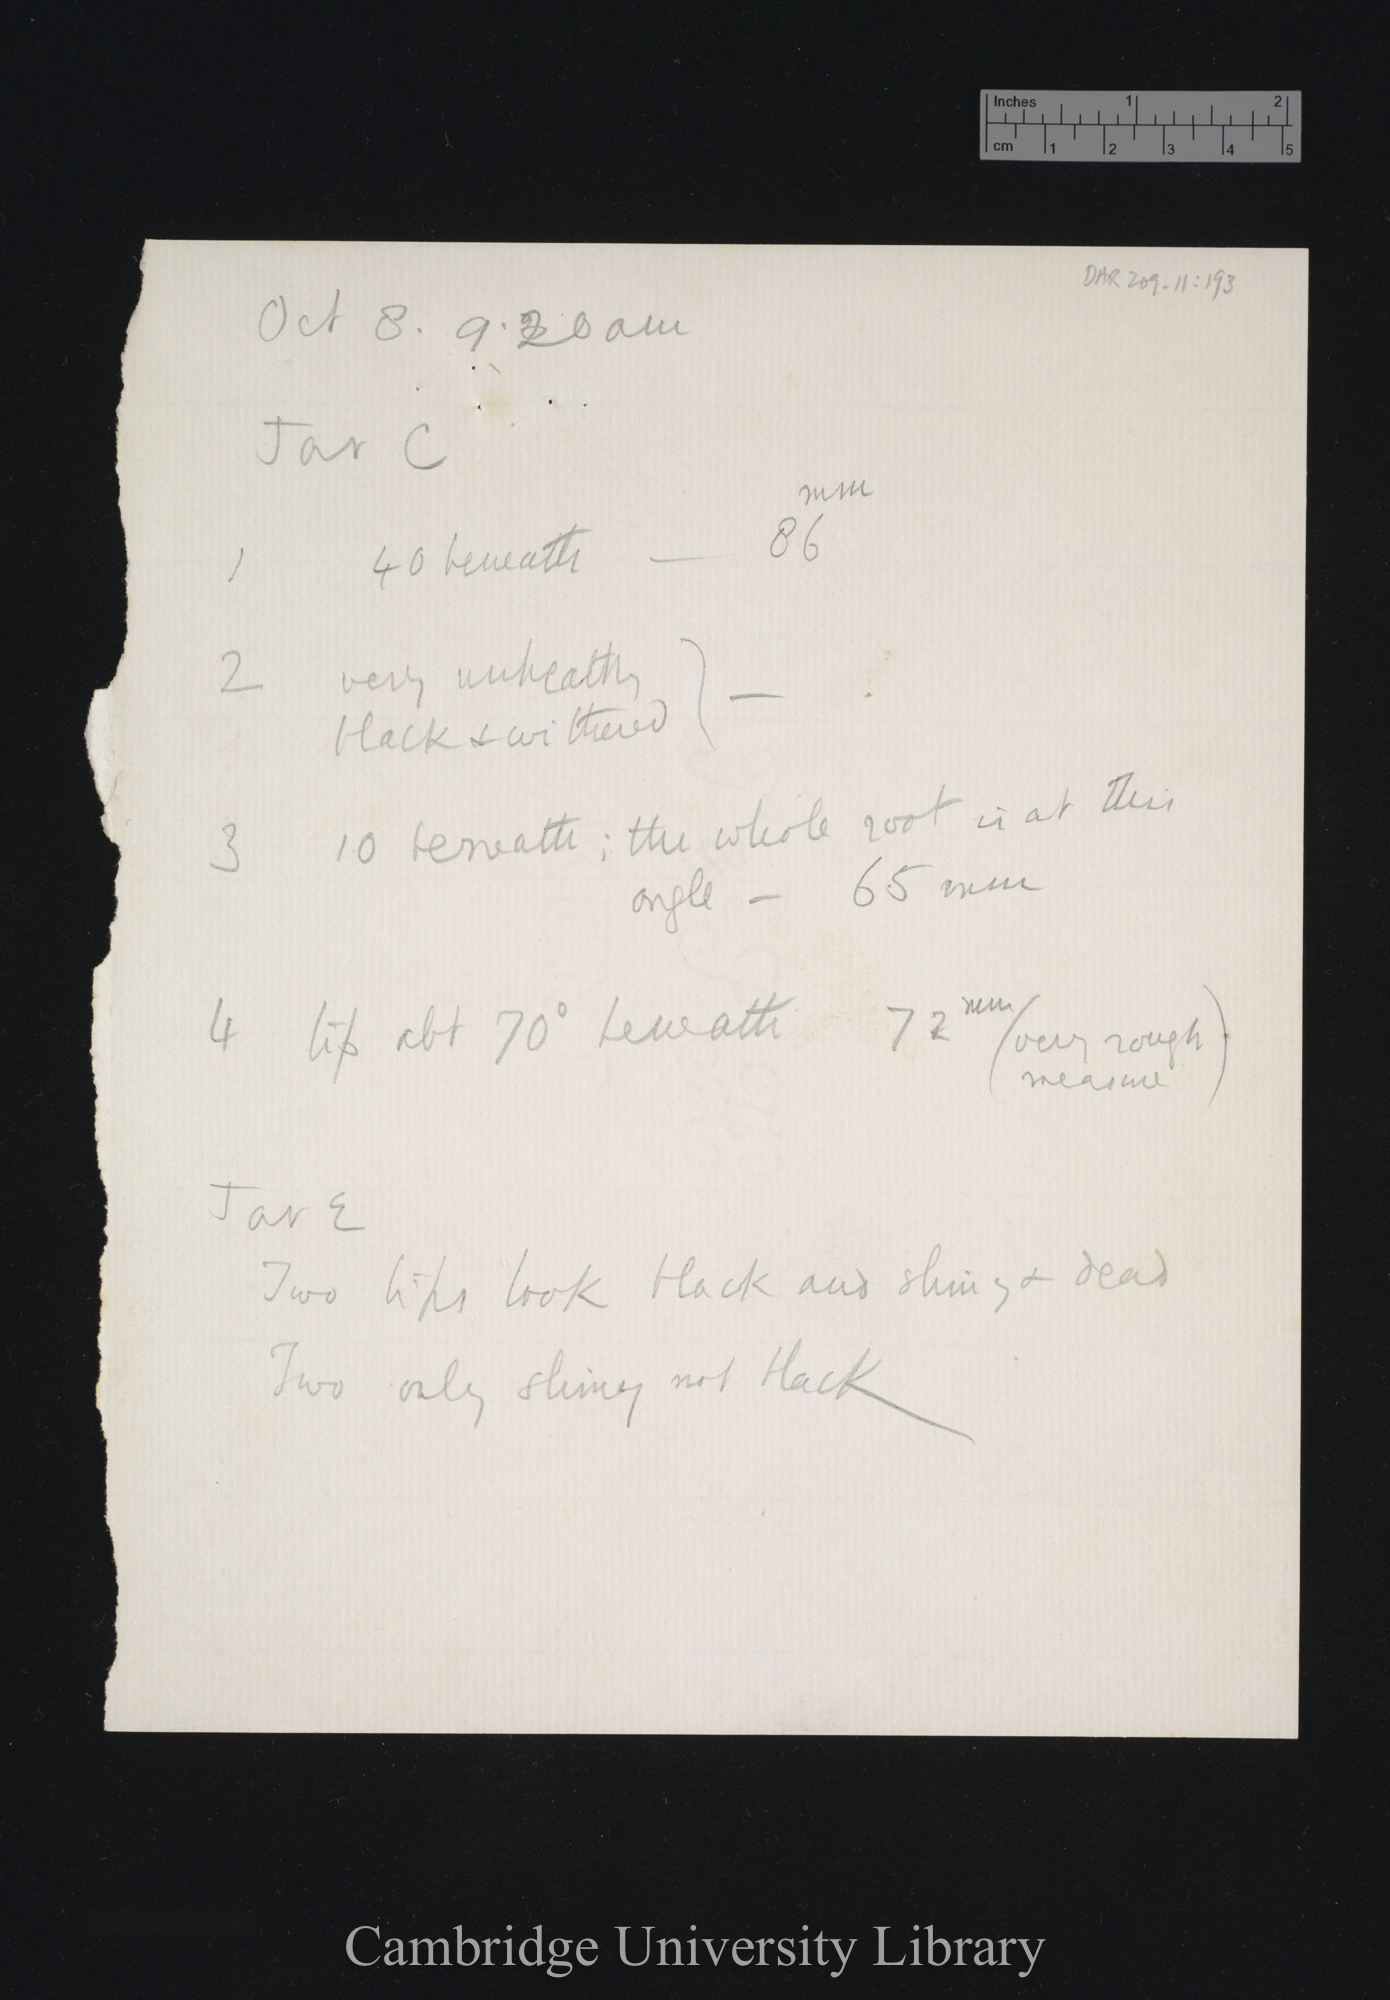 Inches 1 2
cm 1 2 3 4 5
DAR 209.11:193
Oct 8. 9.20 am
Jar C
mm
1 40 beneath — 86
2 very unhealthy
black & withered ) —
3 10 beneath; the whole root is at this
angle — 65 mm
4 tip abt 70° beneath 72 mm (very rough
measure)
Jar E
Two tips look black and shiny & dead
Two only shiny not black
Cambridge University Library